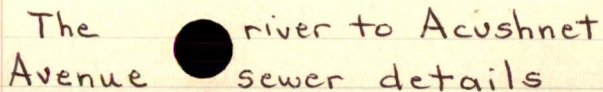 The river to Acushnet
Avenue sewer details